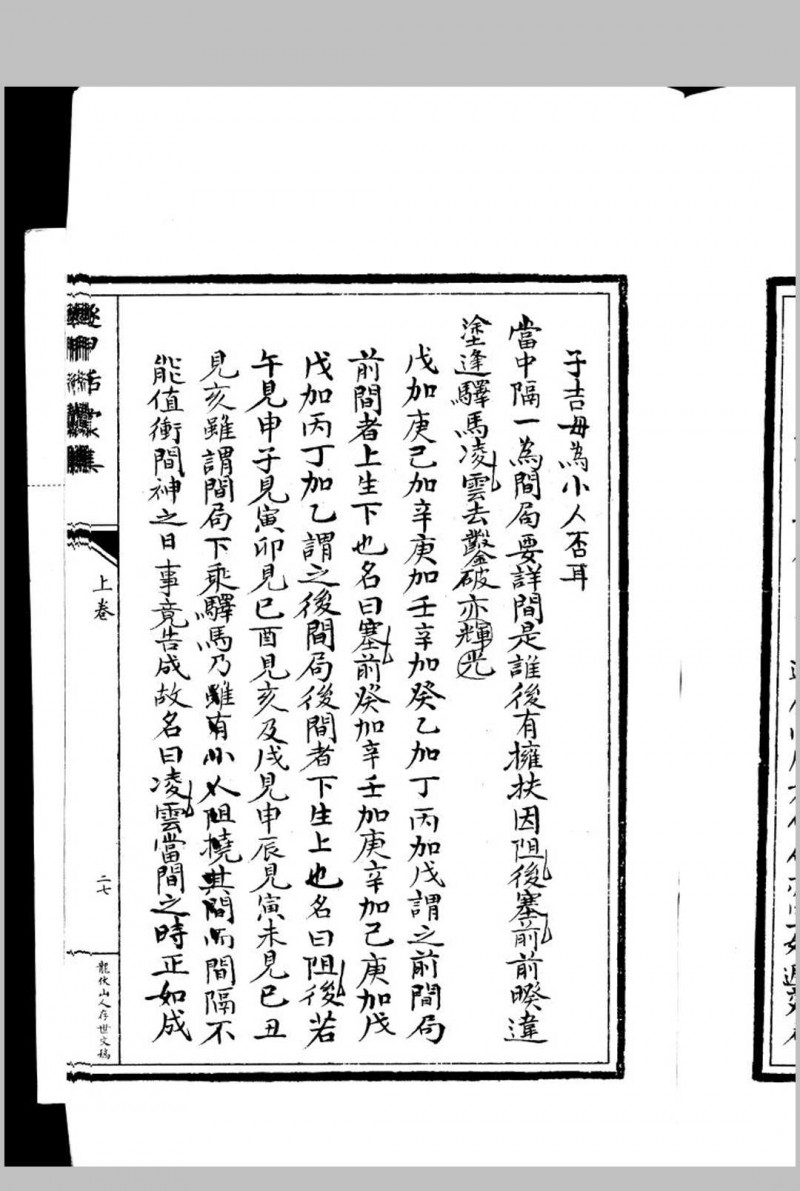 子吉毋為小人否耳
當中隔一為間局要詳間是誰後有擁扶因阻後塞前前暌違
塗逢驛馬凌雲去鑿破亦輝光
戊加庚己加辛庚加壬辛加癸乙加丁丙加戊謂之前間局
前間者上生下也名曰塞前癸加辛壬加庚辛加己庚加戊
戊加丙丁加乙謂之後間局後間者下生上也名曰阻後若
午見申子見寅卯見巳酉見亥及戌見申辰見寅未見巳丑
見亥雖謂間局下乘驛馬乃雖有小人阻撓其間而間隔不
能值衝間神之日事竟告成故名曰凌雲當間之時正如成
上卷
二七
龍伏山人存世文稿